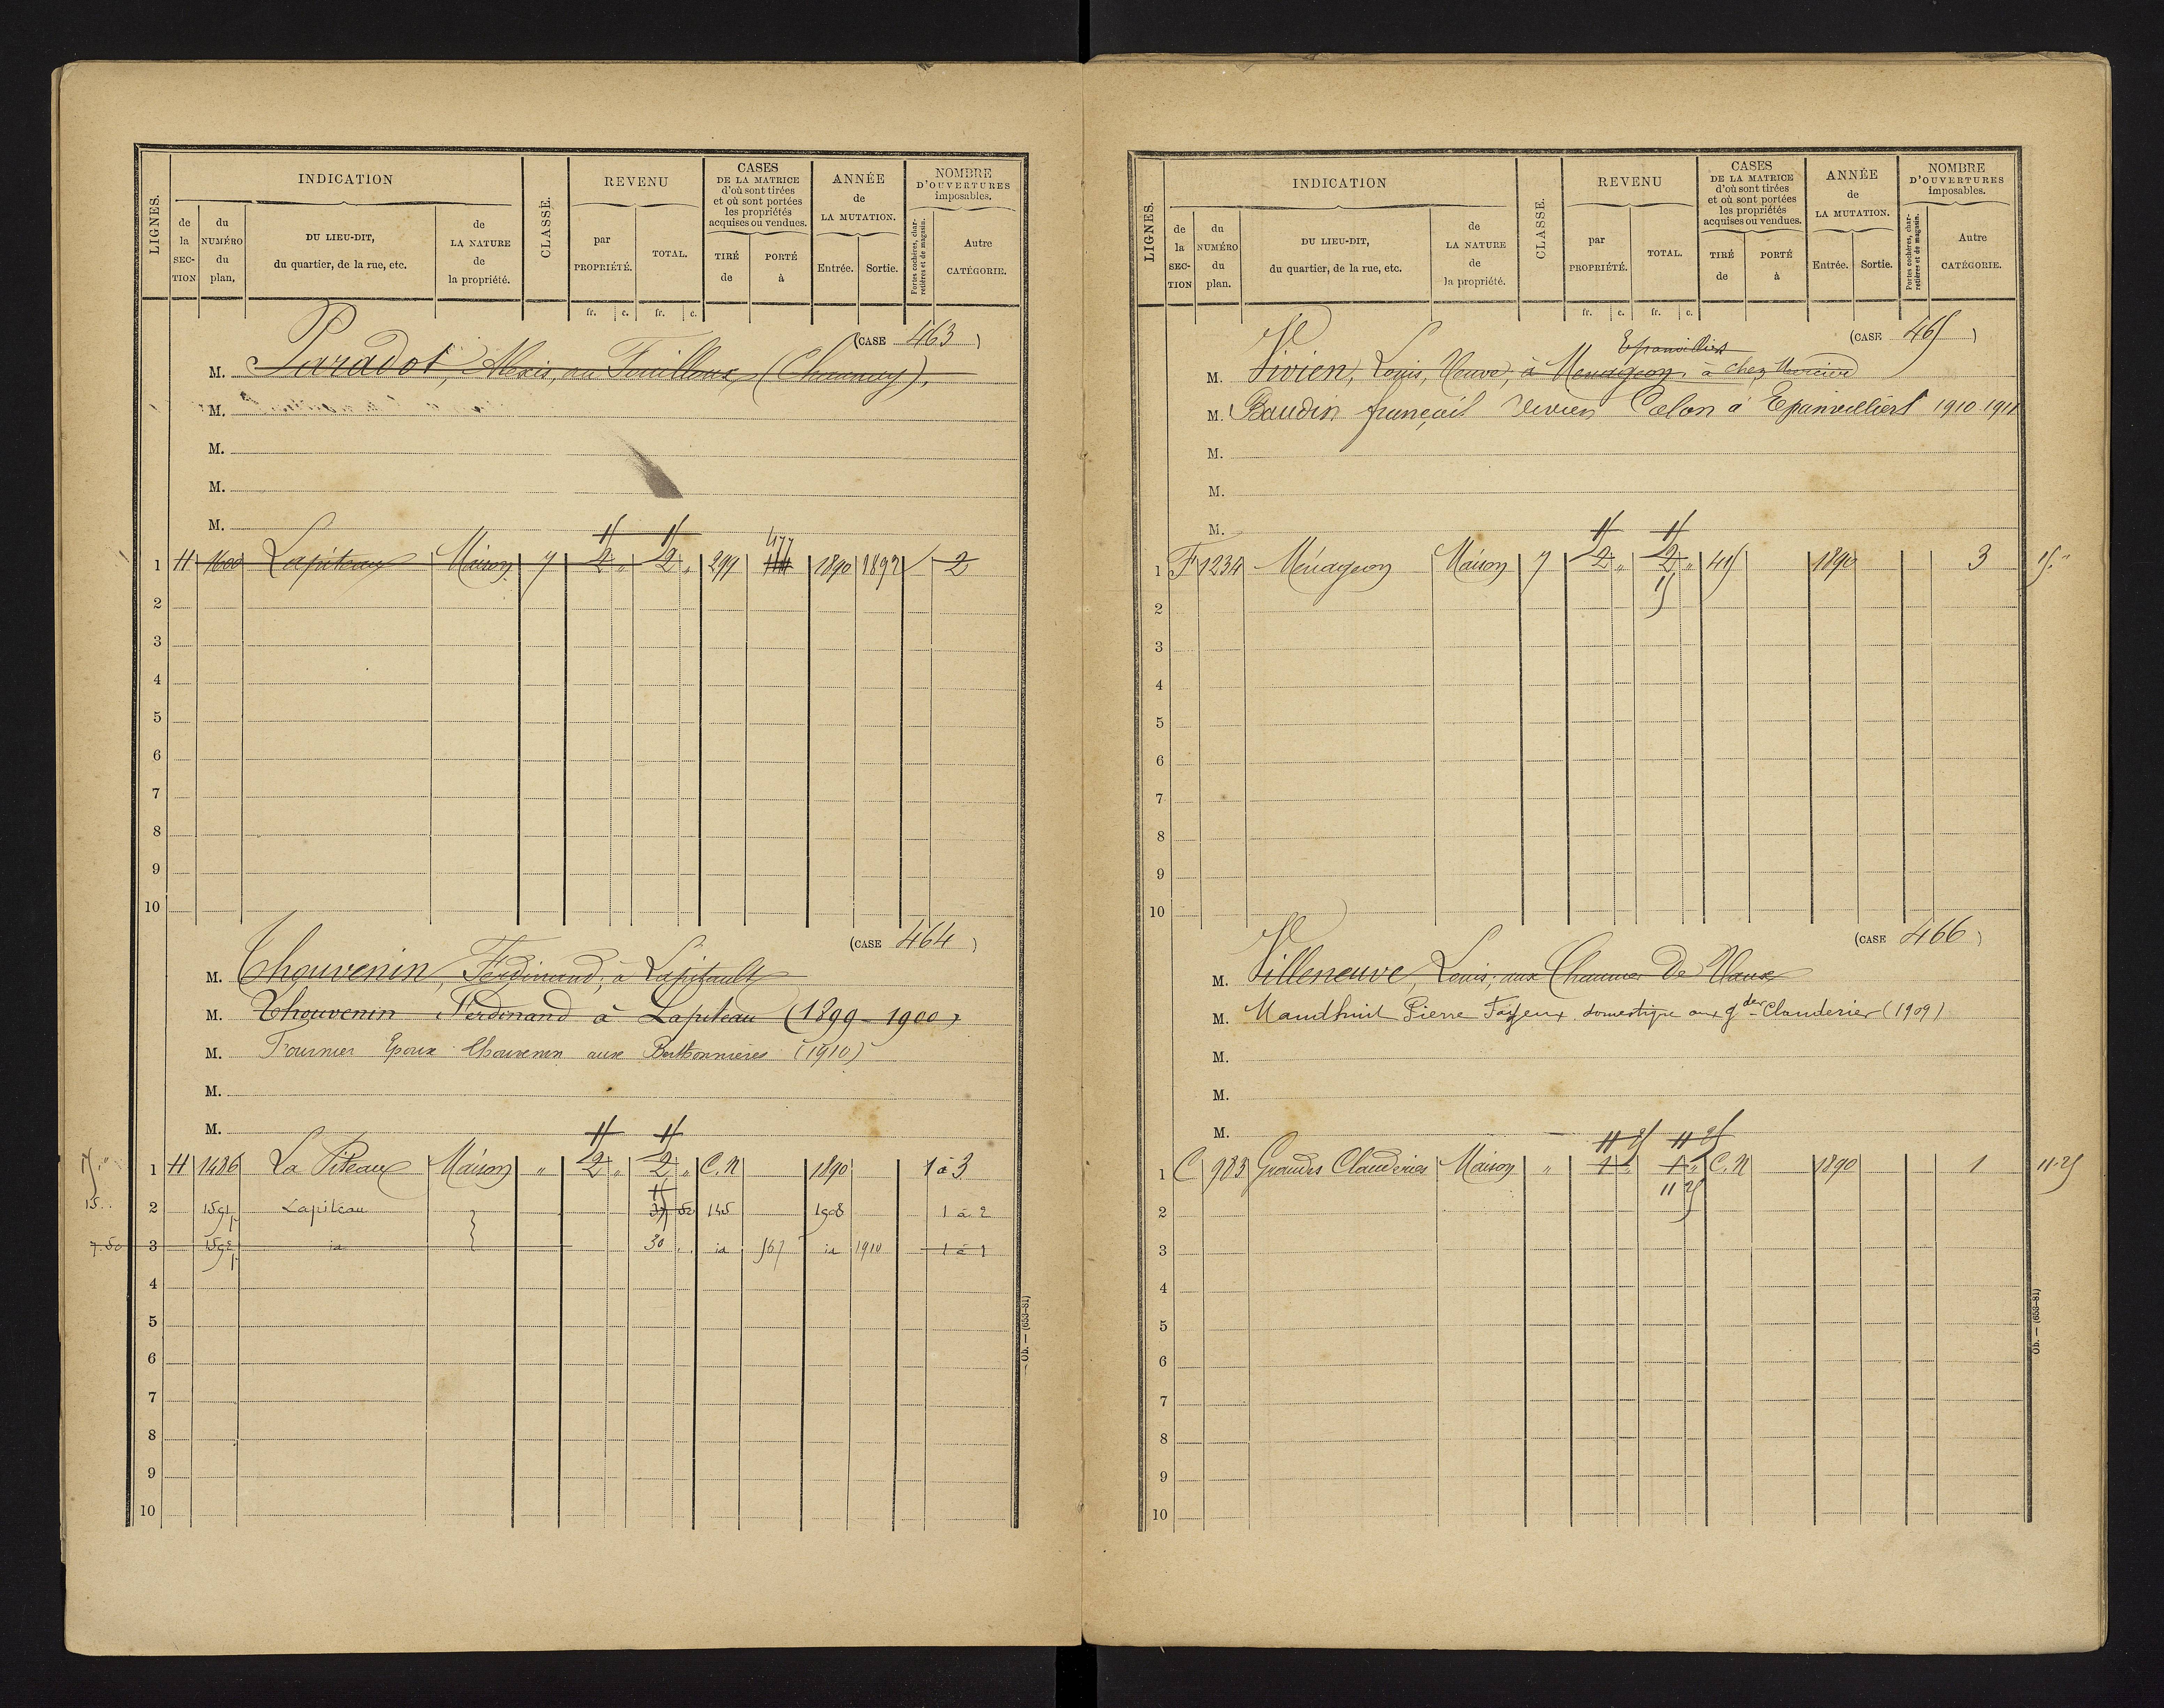 LIGNES.
INDICATION
CLASSE.
REVENU
CASES
DE LA MATRICE
d'où sont tirées
et où sont portées
les propriétés
acquises ou vendues.
ANNÉE
de
LA MUTATION.
NOMBRE
D'OUVERTURES
imposables.
de la SEC-TION
du NUMÉRO du plan,
DU LIEU-DIT,
du quartier, de la rue, etc.
de LA NATURE de la propriété.
par PROPRIÉTÉ.
TOTAL.
TIRÉ de
PORTÉ à
Entrée.
Sortie.
Portes cochères, charretières et de magasin.
Autre CATÉGORIE.
fr. c. fr. c.
(CASE 463)
M. Paradot, Alexis, au Fouilloux (Chaunay).
M.
M.
M.
M.
15 15 477
1 H 1600 Lapiteau Maison 7 2 " 2 " 299 1890 1897 2
2
3
4
5
6
7
8
9
10
(CASE 464)
M. Thouvenin, Ferdinand, à Lapitault
M. Thouvenin Ferdinand à Lapiteau (1899-1900)
M. Fournier Epoux Thouvenin aux Berthonnières (1910)
M.
M.
15 15
15 " 1 H 1486 La Piteau Maison " 2 " 2 " C.N 1890 1 à 3
15
15.. 2 1591 p. Lapiteau 37 50 145 1908 1 à 2
7.50 3 1592 p. id 30 .. id 567 id 1910 1 à 1
4
5
6
7
8
9
10
Ob. — (653-81)
LIGNES.
INDICATION
CLASSE.
REVENU
CASES
DE LA MATRICE
d'où sont tirées
et où sont portées
les propriétés
acquises ou vendues.
ANNÉE
de
LA MUTATION.
NOMBRE
D'OUVERTURES
imposables.
de la SEC-TION
du NUMÉRO du plan.
DU LIEU-DIT,
du quartier, de la rue, etc.
de LA NATURE de la propriété.
par PROPRIÉTÉ.
TOTAL.
TIRÉ de
PORTÉ à
Entrée.
Sortie.
Portes cochères, charretières et de magasin.
Autre CATÉGORIE.
fr. c. fr. c.
(CASE 465)
Epanvilliers
M. Vivien, Louis, Veuve, à Menageon à chez
M. Baudin françois Vivien Colon à Epanvilliers 1910 1911
M.
M.
M.
15 15
1 F 1234 Ménageon Maison 7 2 " 2 " 415 1890 3 15."
15
2
3
4
5
6
7
8
9
10
(CASE 466)
M. Villeneuve, Louis, aux Chaumes de Vaux
M. Maudhuit Pierre Fayeux domestique aux gdes Clauderies (1909)
M.
M.
M.
11 25 11 25
1 C 983 Grandes Clauderies Maison " 1 " 1 " C.N 1890 1 11.25
11 25
2
3
4
5
6
7
8
9
10
Ob. — (653-81)